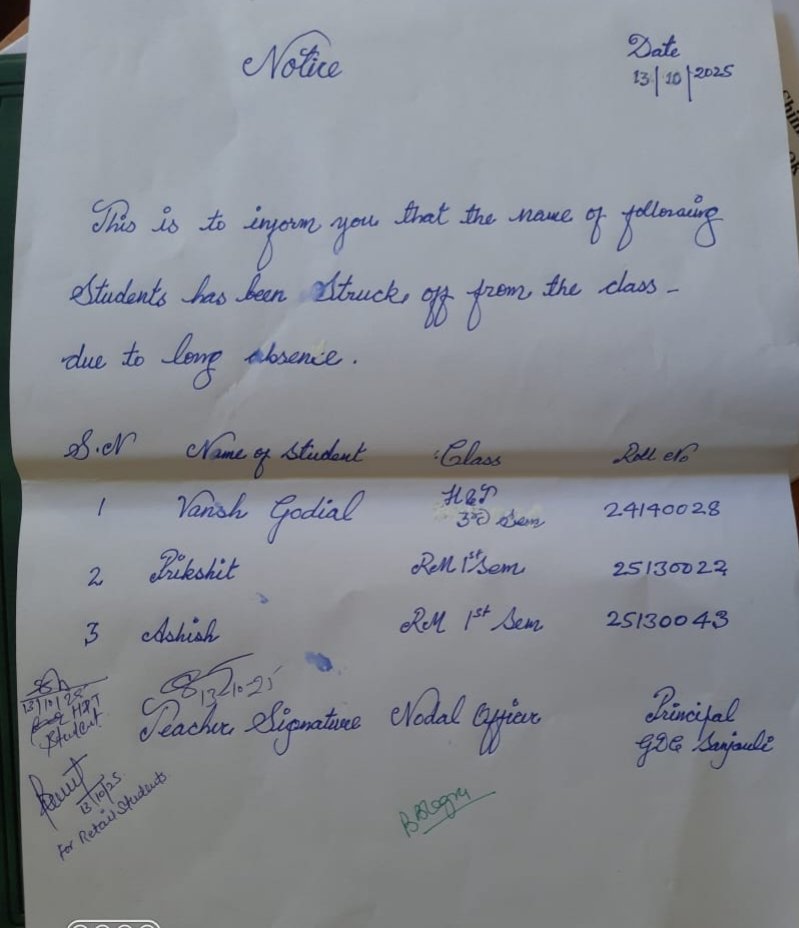 Notice
Date
13/10/2025
This is to inform you that the name of following
Students has been Struck off from the class -
due to long absence.
S.N Name of Student Class Roll No
1 Vansh Godial H&T 3rd Sem 24140028
2 Prikshit RM 1st Sem 25130022
3 Ashish RM 1st Sem 25130043
13-10-25
13/10/25
H&T
Student
Teacher Signature Nodal Officer Principal
GDC Sanjauli
13/10/25
For Retail Students